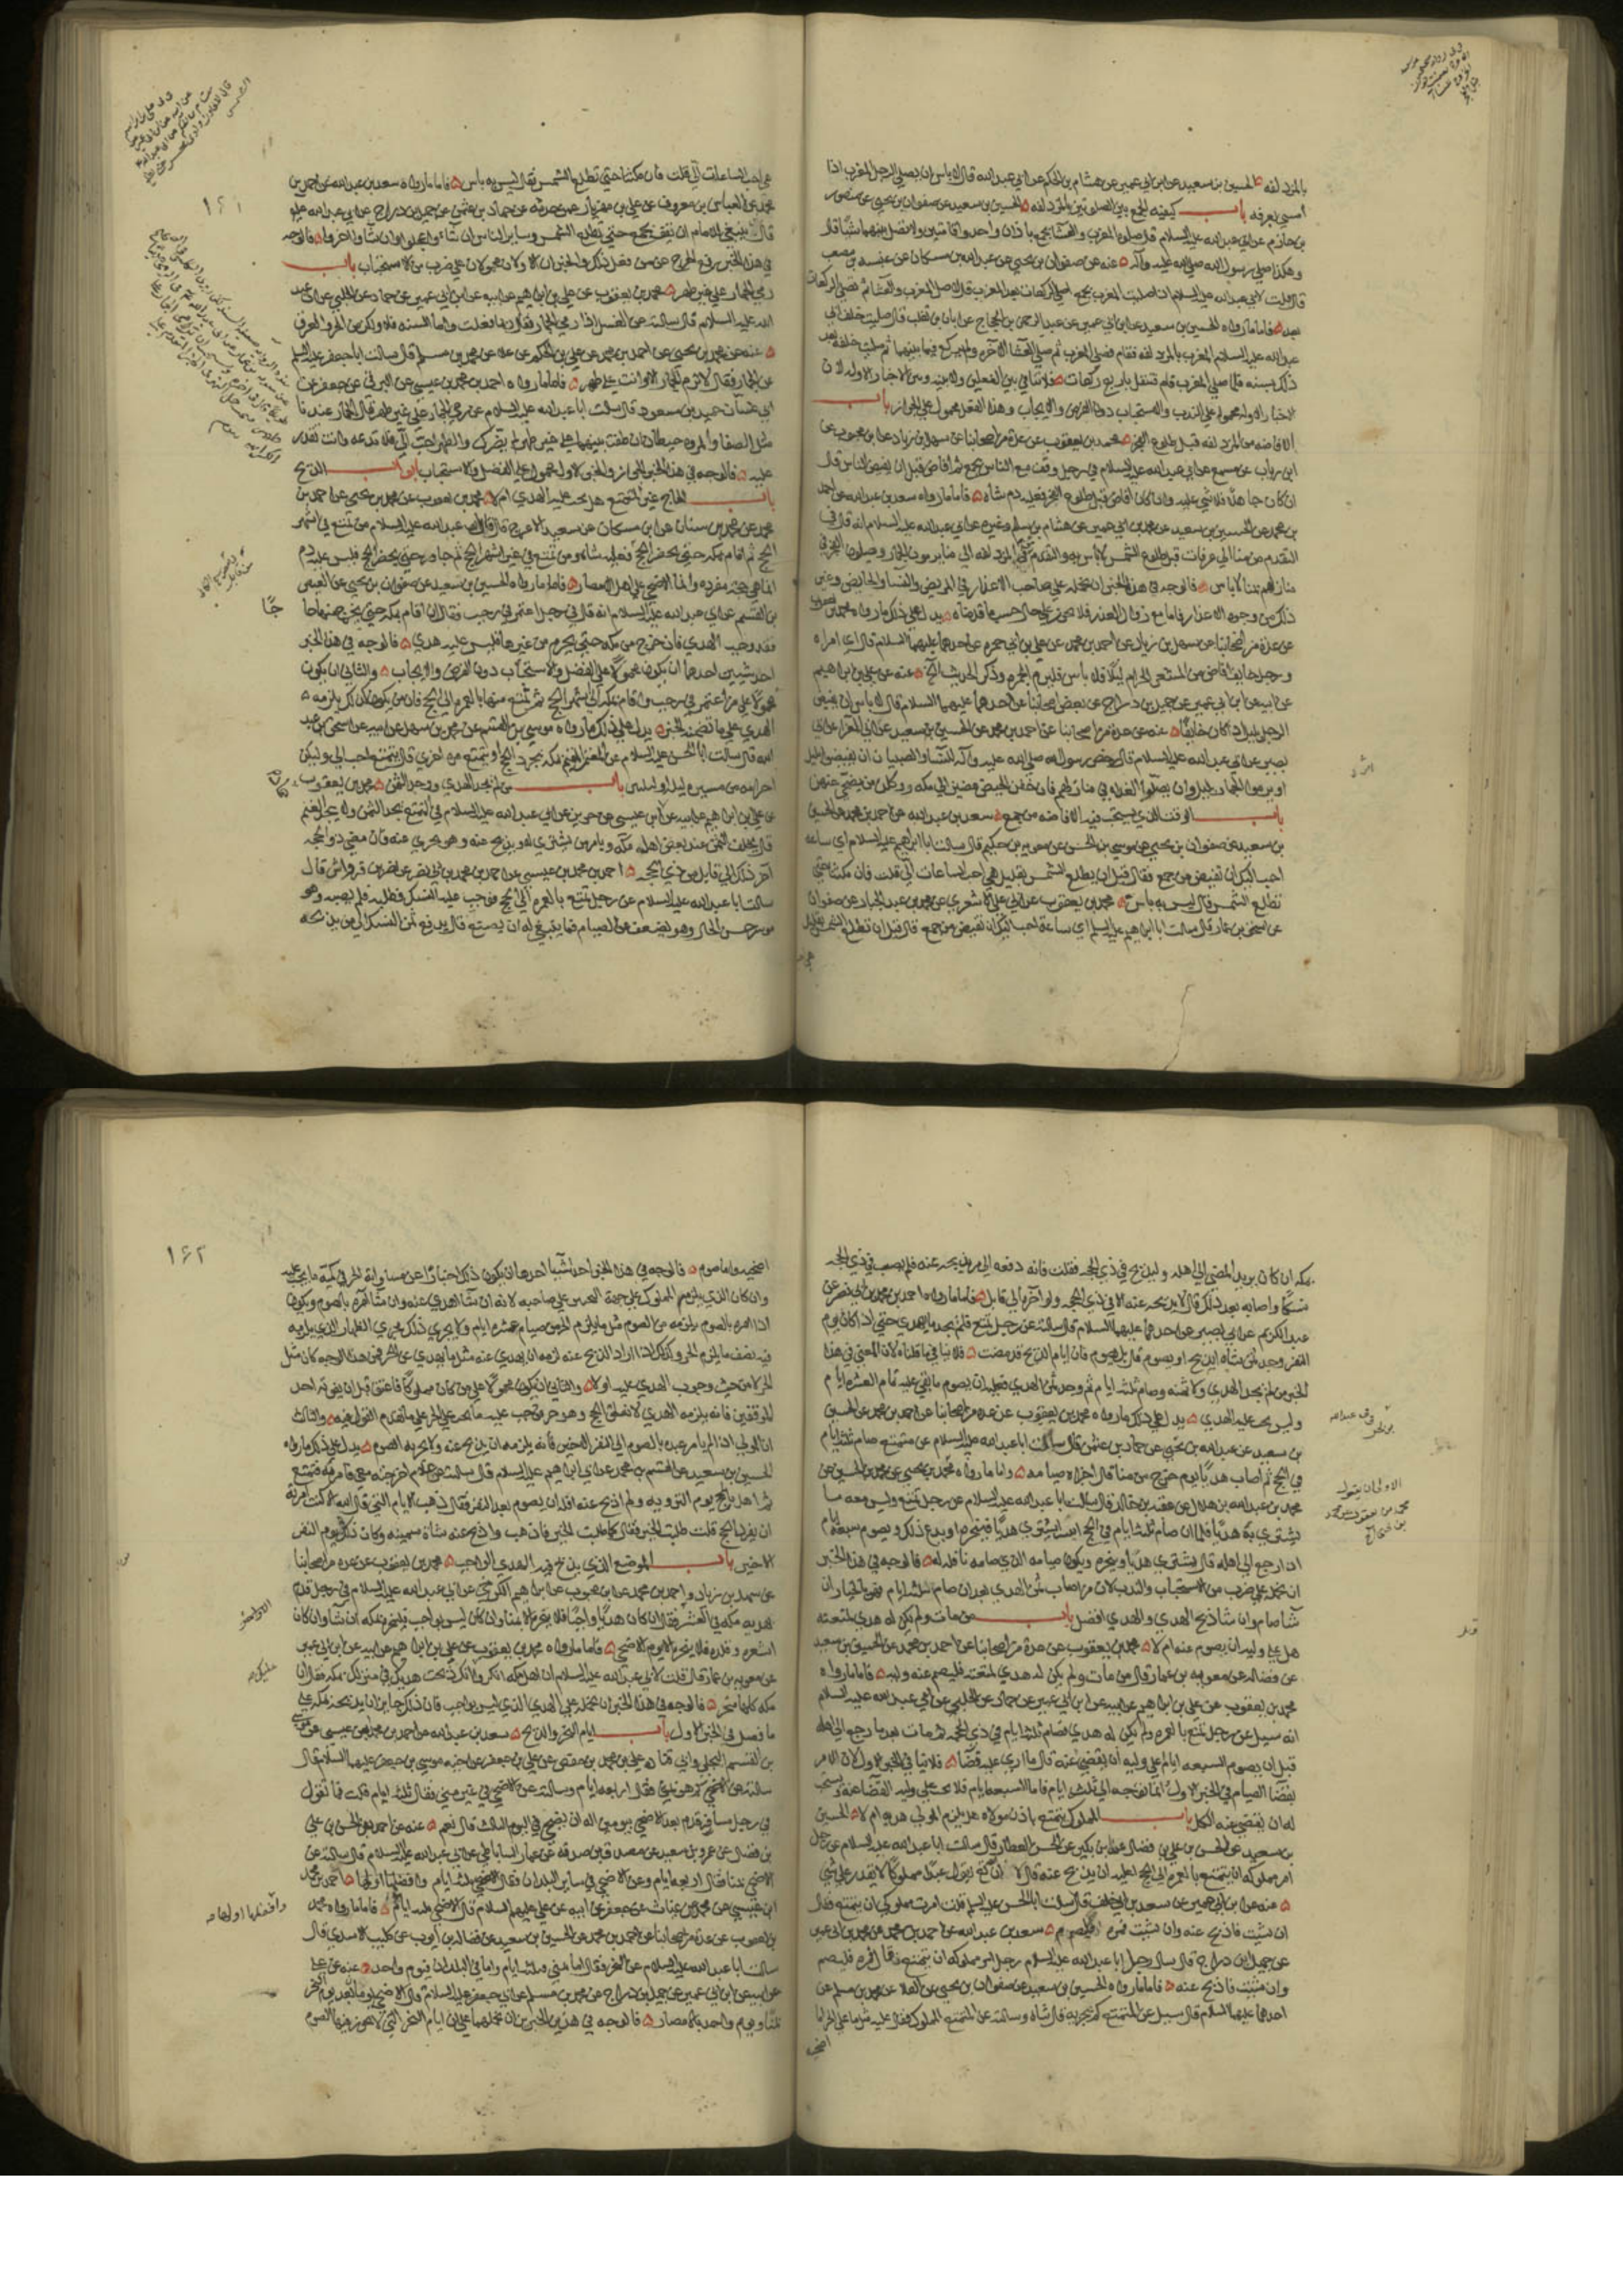 بالمزدلفه الحسين بن سعيد عن ابن ابي عمير عن هشام بن الحكم عن ابي عبد الله قال لا باس ان يصلي الرجل المغرب اذا
امسى بعرفه باب كيفيه الجمع بين الصلوتين بالمزدلفه الحسين بن سعيد عن صفوان بن يحيى عن منصور
بن حازم عن ابي عبد الله عليه السلام قال صلوه المغرب والعشا بجمع باذان واحد واقامتين ولا تصل بينهما شيئا وقال
وهكذا صلى رسول الله صلى الله عليه وآله عنه عن صفوان بن يحيى عن عبد الله بن مسكان عن عنبسه بن مصعب
قال قلت لابي عبد الله عليه السلام اذا صليت المغرب بجمع اصلي الركعات بعد المغرب قال لا صل المغرب والعشا ثم تصلي الركعات
بعد فاما ما رواه الحسين بن سعيد عن ابن ابي عمير عن عبد الرحمن بن الحجاج عن ابان بن تغلب قال صليت خلف ابي
عبد الله عليه السلام المغرب بالمزدلفه فقام فصلى المغرب ثم صلى العشا الآخره ولم يركع فيما بينهما ثم صليت خلفه بعد
ذلك بسنه فلما صلى المغرب قام فتنفل باربع ركعات فلا تنافي بين الفعلين ولا بينه وبين الاخبار الاوله لان
الاخبار الاوله محموله على الندب والاستحباب دون الفرض والايجاب وهذا الفعل محمول على الجواز باب
الافاضه من المزدلفه قبل طلوع الفجر محمد بن يعقوب عن عدة من اصحابنا عن سهل بن زياد عن ابن محبوب عن
ابن رياب عن مسمع عن ابي عبد الله عليه السلام في رجل وقف مع الناس بجمع ثم افاض قبل ان يفيض الناس قال
ان كان جاهلا فلا شي عليه وان كان افاض قبل طلوع الفجر فعليه دم شاه فاما ما رواه سعد بن عبد الله عن احمد
بن محمد عن الحسين بن سعيد عن محمد بن ابي عمير عن هشام بن سالم وغيره عن ابي عبد الله عليه السلام انه قال في
التقدم من منا الى عرفات قبل طلوع الشمس لا باس به والتقدم من المزدلفه الى منا يرمون الجمار ويصلون الفجر في
منازلهم بمنا لا باس فالوجه في هذا الخبر ان نحمله على صاحب الاعذار في المريض والنسا والخايف وغير
ذلك من وجوه الاعذار فاما مع زوال العذر فلا يجوز على حال حسب ما قدمناه يدل على ذلك ما رواه محمد بن يعقوب
عن عدة من اصحابنا عن سهل بن زياد عن احمد بن محمد عن علي بن ابي حمزه عن احدهما عليهما السلام قال اي امراه
ورجل خايف افاض من المشعر الحرام ليلا فلا باس فليرم الجمره وذكر الحديث الخ عنه عن علي بن ابراهيم
عن ابيه عن ابن ابي عمير عن جميل بن دراج عن بعض اصحابنا عن احدهما عليهما السلام قال لا باس ان يفيض
الرجل بليل اذا كان خايفا عنه عن عدة من اصحابنا عن احمد بن محمد عن الحسين بن سعيد عن ابي المغرا عن ابي
بصير عن ابي عبد الله عليه السلام قال رخص رسول الله صلى الله عليه وآله للنسا والصبيان ان يفيضوا بليل
او يرموا الجمار بليل وان يصلوا الغداه في منازلهم فان خفن الحيض مضين الى مكه ووكلن من يضحي عنهن
باب الوقت الذي يستحب فيه الافاضه من جمع سعد بن عبد الله عن احمد بن محمد عن الحسين
بن سعيد عن صفوان بن يحيى عن موسى بن الحسن عن معويه بن حكيم قال سالت ابا ابراهيم عليه السلام اي ساعه
احب اليك ان تفيض من جمع فقال قبل ان تطلع الشمس بقليل هي احب الساعات الي قلت فان مكثنا حتى
تطلع الشمس قال ليس به باس محمد بن يعقوب عن ابي علي الاشعري عن محمد بن عبد الجبار عن صفوان
عن اسحق بن عمار قال سالت ابا ابراهيم عليه السلم اي ساعة احب اليك ان تفيض من جمع قال قبل ان تطلع الشمس بقليل
هي احب الساعات الي قلت فان مكثنا حتى تطلع الشمس فقال ليس به باس فاما ما رواه سعد بن عبد الله عن احمد بن
محمد عن العباس بن معروف عن علي بن مهزيار عمن حدثه عن حماد بن عثمن عن جميل بن دراج عن ابي عبد الله عليه
قال ينبغي للامام ان يقف بجمع حتى تطلع الشمس وساير الناس ان شاءوا عجلوا وان شاوا اخروا فالوجه
في هذا الخبر رفع الحرج عمن فعل ذلك والخبران الاولان محمولان على ضرب من الاستحباب باب
رمي الجمار على غير طهر محمد بن يعقوب عن علي بن ابراهيم عن ابيه عن ابن ابي عمير عن حماد عن الحلبي عن ابي عبد
الله عليه السلام قال سالته عن الغسل اذا رمى الجمار فقال ربما فعلت واما السنه فلا ولكن من الحر والعرق
عنه عن محمد بن يحيى عن احمد بن محمد عن علي بن الحكم عن علا عن محمد بن مسلم قال سالت ابا جعفر عليه السلم
عن الجمار فقال لا ترم الجمار الا وانت على طهر فاما ما رواه احمد بن محمد بن عيسى عن البرقي عن جعفر عن
ابي غسان حميد بن مسعود قال سالت ابا عبد الله عليه السلام عن رمي الجمار على غير طهر قال الجمار عندنا
مثل الصفا والمروه حيطان ان طفت بينهما على غير طهر لم يضرك والطهر احب الي فلا تدعه وانت تقدر
عليه فالوجه في هذا الخبر الجواز والخبر الاول محمول على الفضل والاستحباب ابواب الذبح
باب الحاج غير المتمتع هل يجب عليه الهدي ام لا محمد بن يعقوب عن محمد بن يحيى عن احمد بن
محمد عن محمد بن سنان عن ابن مسكان عن سعيد الاعرج قال قال ابو عبد الله عليه السلام من تمتع في اشهر
الحج ثم اقام بمكه حتى يحضر الحج فعليه شاه ومن تمتع في غير اشهر الحج ثم جاور حتى يحضر الحج فليس عليه دم
انما هي حجه مفرده وانما الاضحى على اهل الامصار فاما ما رواه الحسين بن سعيد عن صفوان بن يحيى عن العيص
بن القسم عن ابي عبد الله عليه السلام انه قال في رجل اعتمر في رجب فقال ان اقام بمكه حتى يخرج منها حاجا
فقد وجب الهدي فان خرج من مكه حتى يحرم من غيرها فليس عليه هدي فالوجه في هذا الخبر
احد شيئين احدهما ان يكون محمولا على الفضل والاستحباب دون الفرض والايجاب والثاني ان يكون
محمولا على من اعتمر في رجب واقام بمكه الى اشهر الحج ثم تمتع منها بالعمره الى الحج فان من يكون كذلك يلزمه
الهدي على ما تضمنه الخبر يدل على ذلك ما رواه موسى بن القسم عن محمد بن سهل عن ابيه عن اسحق بن عبد
الله قال سالت ابا الحسن عليه السلام عن المعتمر المقيم بمكه يجرد الحج او يتمتع مره اخرى قال يتمتع احب الي وليكن
احرامه من مسيره ليله او ليلتين باب من لم يجد الهدي ووجد الثمن محمد بن يعقوب
عن علي بن ابراهيم عن ابيه عن حماد بن عيسى عن حريز عن ابي عبد الله عليه السلام في متمتع يجد الثمن ولا يجد الغنم
قال يخلف الثمن عند بعض اهل مكه ويامر من يشتري له ويذبح عنه وهو يجزي عنه فان مضى ذو الحجه
آخر ذلك الى قابل من ذي الحجه احمد بن محمد بن عيسى عن احمد بن محمد بن ابي نصر عن النضر بن قرواش قال
سالت ابا عبد الله عليه السلام عن رجل تمتع بالعمره الى الحج فوجب عليه النسك فطلبه فلم يصبه وهو
موسر حسن الحال وهو يضعف عن الصيام فما ينبغي له ان يصنع قال يدفع ثمن النسك الى من يذبحه
١٦١
بمكه ان كان يريد المضي الى اهله وليذبح في ذي الحجه فقلت فانه دفعه الى من يذبحه عنه فلم يصب في ذي الحجه
نسكا واصابه بعد ذلك قال لا يذبح عنه الا في ذي الحجه ولو اخره الى قابل فاما ما رواه احمد بن محمد بن ابي نصر عن
عبد الكريم عن ابي بصير عن احدهما عليهما السلام قال سالته عن رجل تمتع فلم يجد ما يهدي حتى اذا كان يوم
النفر وجد ثمن شاه ايذبح او يصوم قال بل يصوم فان ايام الذبح قد مضت فلا ينافي ما قلناه لان المعنى في هذا
الخبر من لم يجد الهدي ولا ثمنه وصام ثلثه ايام ثم وجد ثمن الهدي فعليه ان يصوم ما بقي عليه تمام العشره ايام
وليس يجب عليه الهدي يدل على ذلك ما رواه محمد بن يعقوب عن عدة من اصحابنا عن احمد بن محمد عن الحسين
بن سعيد عن عبد الله بن يحيى عن حماد بن عثمن قال سالت ابا عبد الله عليه السلام عن متمتع صام ثلثه ايام
في الحج ثم اصاب هديا يوم خرج من منا قال اجزاه صيامه واما ما رواه محمد بن يحيى عن محمد بن الحسين عن
محمد بن عبد الله بن هلال عن عقبه بن خالد قال سالت ابا عبد الله عليه السلام عن رجل تمتع وليس معه ما
يشتري به هديا فلما ان صام ثلثه ايام في الحج ايسر ايشتري هديا فينحره او يدع ذلك ويصوم سبعه ايام
اذا رجع الى اهله قال يشتري هديا وينحره ويكون صيامه الذي صامه نافله له فالوجه في هذا الخبر
ان نحمله على ضرب من الاستحباب والندب لان من اصاب ثمن الهدي بعد ان صام ثلثه ايام فهو بالخيار ان
شا صام وان شا ذبح الهدي والهدي افضل باب من مات ولم يكن له هدي لمتعته
هل على وليه ان يصوم عنه ام لا محمد بن يعقوب عن عدة من اصحابنا عن احمد بن محمد عن الحسين بن سعيد
عن فضاله عن معويه بن عمار قال من مات ولم يكن له هدي لمتعته فليصم عنه وليه فاما ما رواه
محمد بن يعقوب عن علي بن ابراهيم عن ابيه عن ابن ابي عمير عن حماد عن الحلبي عن ابي عبد الله عليه السلام
انه سيل عن رجل تمتع بالعمره ولم يكن له هدي فصام ثلثه ايام في ذي الحجه ثم مات بعد ما رجع الى اهله
قبل ان يصوم السبعه ايام اعلى وليه ان يقضي عنه قال ما ارى عليه قضا فلا ينافي الخبر الاول لان الامر
بقضا الصيام في الخبر الاول انما توجه الى ثلثه ايام فاما السبعه ايام فلا يجب على وليه القضا عنه ويستحب
له ان يقضي عنه الكل باب المملوك يتمتع باذن مولاه هل يلزم المولى هديه ام لا الحسين
بن سعيد عن الحسن بن علي بن فضال عن ابن بكير عن الحسن العطار قال سالت ابا عبد الله عليه السلام عن رجل
امر مملوكه ان يتمتع بالعمره الى الحج اعليه ان يذبح عنه قال لا ان الله يقول عبدا مملوكا لا يقدر على شي
عنه عن ابن ابي عمير عن سعد بن ابي خلف قال سالت ابا الحسن عليه السلم قلت امرت مملوكي ان يتمتع فقال
ان شيت فاذبح عنه وان شيت فمره فليصم سعد بن عبد الله عن احمد بن محمد عن محمد بن ابي عمير
عن جميل بن دراج قال سال رجل ابا عبد الله عليه السلام رجل امر مملوكه ان يتمتع فقال فمره فليصم
وان شيت فاذبح عنه فاما ما رواه الحسين بن سعيد عن صفوان بن يحيى عن العلا عن محمد بن مسلم عن
احدهما عليهما السلام قال سيل عن المتمتع كم يجزيه قال شاه وسالته عن المتمتع المملوك فقال عليه مثل ما على الحر اما
اضحيه
اضحيه واما صوم فالوجه في هذا الخبر احد اشيا احدها ان يكون ذلك اخبارا عن مساواة الحر في كميه ما يجب عليه
وان كان الذي يلزم المملوك على جهة التخيير على صاحبه لانه ان شا اهدى عنه وان شا امره بالصوم ويكون
اذا امره بالصوم يلزمه من الصوم مثل ما يلزم الحر من صيام عشره ايام ولا يجري ذلك مجرى الظهار الذي يلزمه
فيه نصف ما يلزم الحر وكذلك اذا اراد الذبح عنه لزمه ان يهدي عنه مثل ما يهدي عن الحر فمن هذا الوجه كان مثل
الحر لا من حيث وجوب الهدي عليه اولا والثاني ان يكون محمولا على من كان مملوكا فاعتق قبل ان يفوته احد
الموقفين فانه يلزمه الهدي لانه لحق الحج وهو حر فيجب عليه ما يجب على الحر على ما تقدم القول فيه والثالث
ان المولى اذا لم يامر عبده بالصوم الى النفر الاخير فانه يلزمه ان يذبح عنه ولا يجزيه الصوم يدل على ذلك ما رواه
الحسين بن سعيد عن القسم بن محمد عن علي عن ابي ابراهيم عليه السلام قال سالته عن غلام اخرجته معي فامرته فتمتع
ثم اهل بالحج يوم الترويه ولم اذبح عنه افله ان يصوم بعد النفر فقال ذهب الايام التي قال الله الا كنت امرته
ان يفرد الحج قلت طلبت الخير فقال كما طلبت الخير فاذهب واذبح عنه شاة سمينه وكان ذلك يوم النفر
الاخير باب الموضع الذي يذبح فيه الهدي الواجب محمد بن يعقوب عن عدة من اصحابنا
عن سهل بن زياد واحمد بن محمد عن ابن محبوب عن ابراهيم الكرخي عن ابي عبد الله عليه السلام في رجل قدم
بهديه مكه في العشر فقال ان كان هديا واجبا فلا ينحره الا بمنا وان كان ليس بواجب فلينحره بمكه ان شا وان كان
اشعره وقلده فلا ينحره الا يوم الاضحى فاما ما رواه محمد بن يعقوب عن علي بن ابراهيم عن ابيه عن ابن ابي عمير
عن معويه بن عمار قال قلت لابي عبد الله عليه السلام ان اهل مكه انكروا عليك انك ذبحت هديك في منزلك بمكه فقال ان
مكه كلها منحر فالوجه في هذا الخبر ان نحمله على الهدي الذي ليس بواجب فان ذلك جايز ان يذبحه بمكه على
ما فصل في الخبر الاول باب ايام النحر والذبح سعد بن عبد الله عن احمد بن محمد بن عيسى عن موسى
بن القسم البجلي وابي قتاده علي بن محمد بن حفص عن علي بن جعفر عن اخيه موسى بن جعفر عليهما السلام قال
سالته عن الاضحى كم هو بمنى فقال اربعه ايام وسالته عن الاضحى في غير منى فقال ثلثه ايام قلت فما تقول
في رجل مسافر قدم بعد الاضحى بيومين اله ان يضحي في اليوم الثالث قال نعم عنه عن احمد بن الحسن بن علي
بن فضال عن عمرو بن سعيد عن مصدق بن صدقه عن عمار الساباطي عن ابي عبد الله عليه السلام قال سالته عن
الاضحى بمنا فقال اربعه ايام وعن الاضحى في ساير البلدان فقال الاضحى ثلثه ايام وافضلها اولها احمد بن محمد
ابن عيسى عن محمد بن يحيى عن غياث بن ابراهيم عن جعفر عن ابيه عن علي عليهم السلام قال الاضحى ثلثه ايام فاما ما رواه محمد
بن يعقوب عن عدة من اصحابنا عن احمد بن محمد عن الحسين بن سعيد عن فضاله بن ايوب عن كليب الاسدي قال
سالت ابا عبد الله عليه السلام عن النحر فقال اما بمنى فثلثه ايام واما في البلدان فيوم واحد عنه عن علي
عن ابيه عن ابن ابي عمير عن جميل بن دراج عن محمد بن مسلم عن ابي جعفر عليه السلام قال الاضحى يومان بعد يوم النحر
بمنا ويوم واحد بالامصار فالوجه في هذين الخبرين ان نحملهما على ان ايام النحر التي لا يجوز فيها الصوم
١٦٢
وافضلها اولها